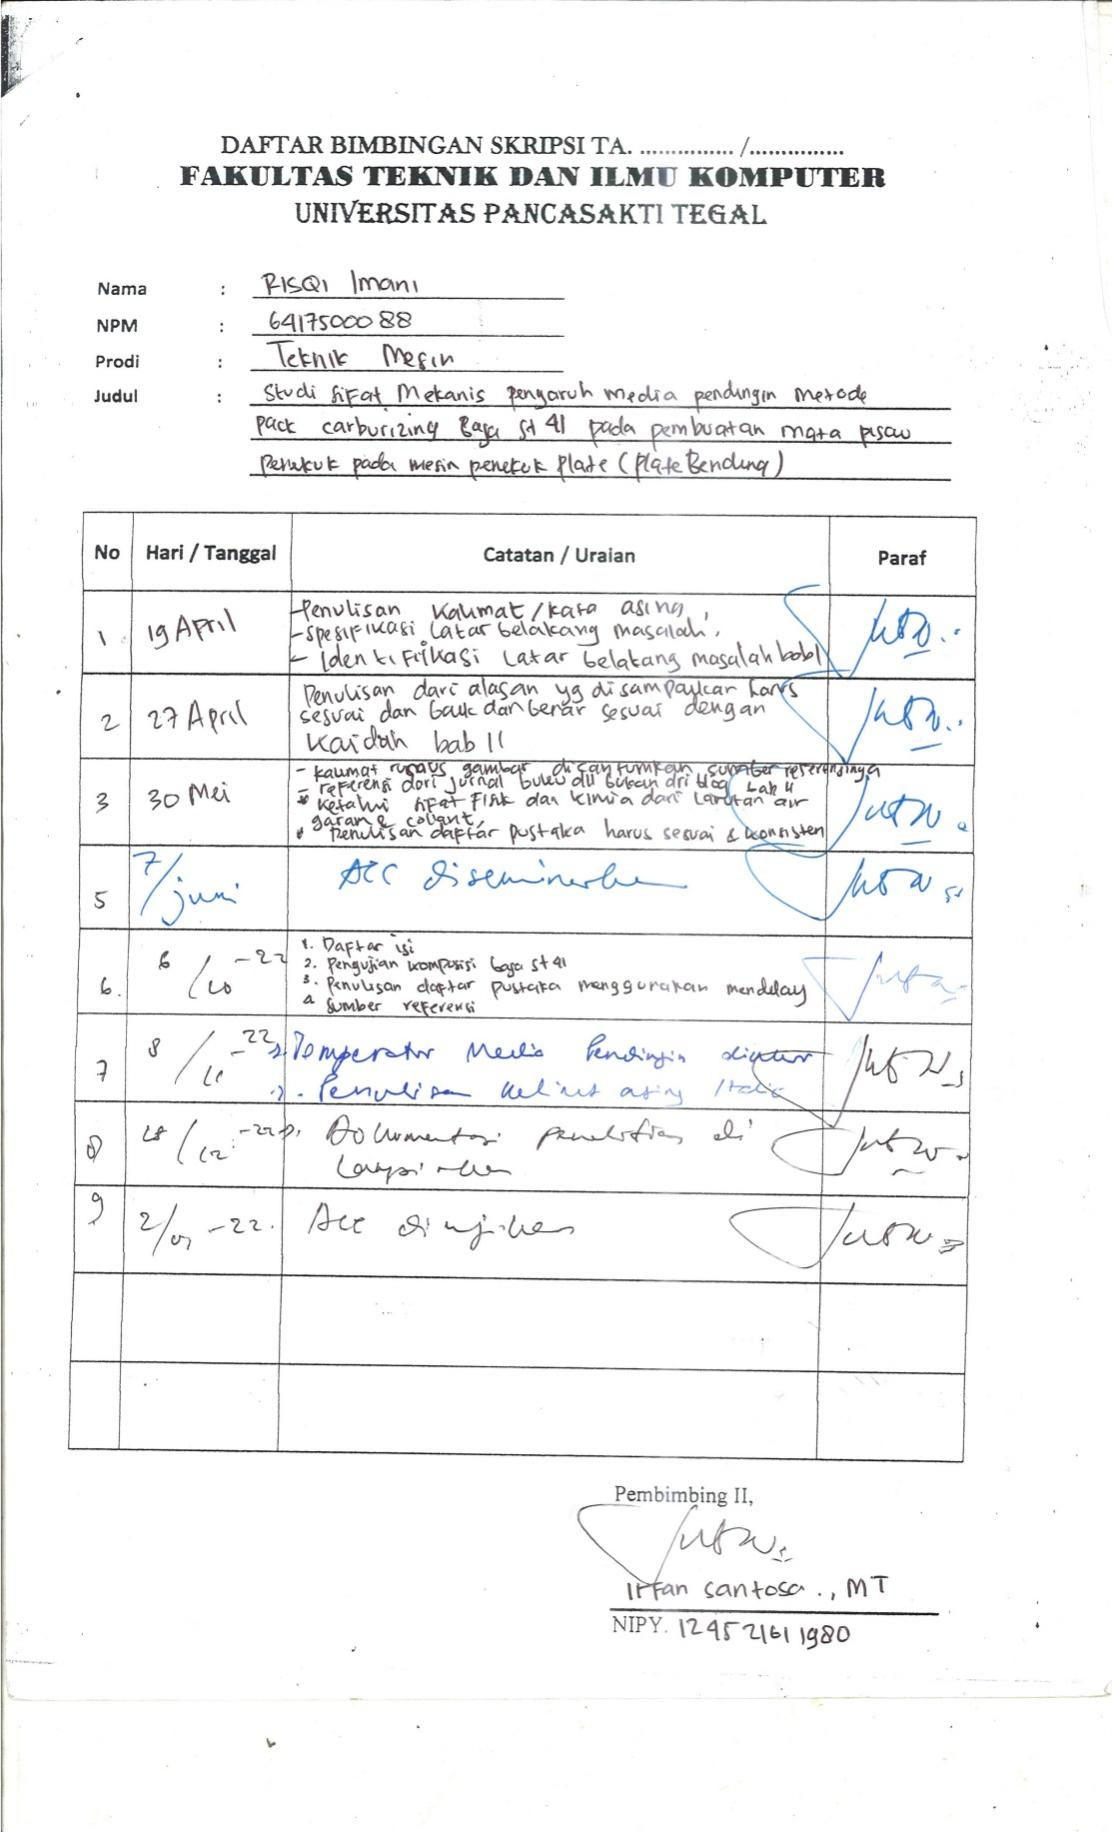 DAFTAR BIMBINGAN SKRIPSI TA. ............... /...............
FAKULTAS TEKNIK DAN ILMU KOMPUTER
UNIVERSITAS PANCASAKTI TEGAL
Nama : RISQI Imani
NPM : 6417500088
Prodi : Teknik Mesin
Judul : Studi Sifat Mekanis pengaruh media pendingin metode
pack carburizing Baja st 41 pada pembuatan mata pisau
penekuk pada mesin penekuk plate (Plate Bending)
No Hari / Tanggal Catatan / Uraian Paraf
1 19 April
-Penulisan Kalimat/kata asing,
-spesifikasi latar belakang masalah,
- Identifikasi Latar belakang masalah
2 27 April
Penulisan dari alasan yg disampaikan harus
sesuai dan baik dan benar sesuai dengan
kaidah bab II
3 30 Mei
- kalimat gambar dicantumkan sumber referensinya
- referensi dari jurnal buku dll bukan dri blog
ketahui sifat fisik dan kimia dari larutan air
garam &
penulisan daftar pustaka harus sesuai & konsisten
5 7/juni ACC diseminarkan
6. 6/10-22
1. Daftar isi
2. Pengujian komposisi baja st 41
3. Penulisan daftar pustaka menggunakan mendeley
4 Sumber referensi
7 8/11-22
Temperatur Media Pendingin diukur
Penulisan asing Italic
8 /12-22
Dokumentasi penelitian di
lampirkan
9 2/01-22. Acc diujikan
Pembimbing II,
Irfan Santosa., MT
NIPY. 124521611980